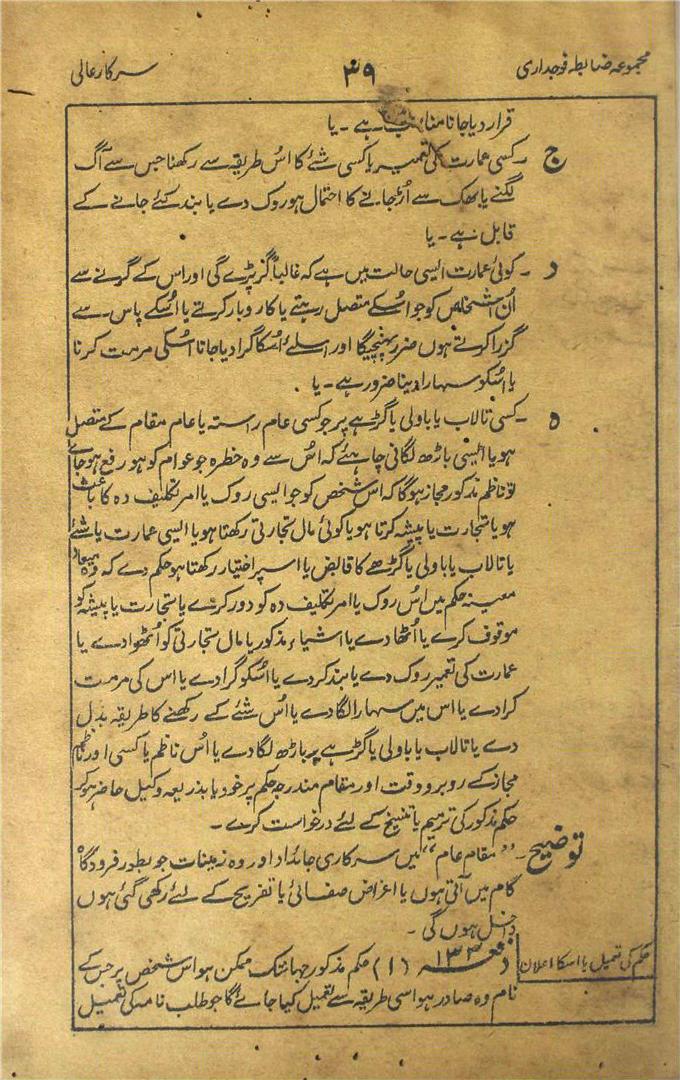 مجموعہ ضابطہ فوجداری ۳۹ سرکار عالی
قرار دیا جانا مناسب ہے ۔ یا
ج ۔ کسی عمارت کی تعمیر یا کسی شئے کا اس طریقہ سے رکھنا جس سے آگ
لگنے یا بھک سے اُڑ جانے کا احتمال ہو روک دے یا بند کئے جانے کے
قابل ہے ۔ یا
د ۔ کوئی عمارت ایسی حالت میں ہے کہ غالباً گر پڑے گی اور اس کے گرنے سے
اُن اشخاص کو جو اُسکے متصل رہتے یا کاروبار کرتے یا اُسکے پاس سے
گزرا کرتے ہوں ضرر پہنچیگا اور اسلئے اُسکا گرا دیا جانا اُسکی مرمت کرنا
یا اُسکو سہارا دینا ضرور ہے ۔ یا ۔
ہ ۔ کسی تالاب یا باولی یا گڑھے پر جو کسی عام راستہ یا عام مقام کے متصل
ہو یا ایسی باڑھ لگانی چاہئے کہ اُس سے وہ خطرہ جو عوام کو ہو رفع ہو جائے
تو ناظم مذکور مجاز ہوگا کہ اس شخص کو جو ایسی روک یا امر تکلیف دہ کا باعث
ہو یا تجارت یا پیشہ کرتا ہو یا کوئی مال تجارتی رکھتا ہو یا ایسی عمارت یا شئے
یا تالاب یا باولی یا گڑھے کا قابض یا اسپر اختیار رکھتا ہو حکم دے کہ وہ میعاد
معینہ حکم میں اُس روک یا امر تکلیف دہ کو دور کرے یا تجارت یا پیشہ کو
موقوف کرے یا اُٹھا دے یا اشیاء مذکور یا مال تجارتی کو اُٹھوا دے یا
عمارت کی تعمیر روک دے یا بند کر دے یا اُسکو گرا دے یا اس کی مرمت
کرا دے یا اس میں سہارا لگا دے یا اُس شئے کے رکھنے کا طریقہ بدل
دے یا تالاب یا باولی یا گڑھے پر باڑھ لگا دے یا اُس ناظم یا کسی اور ناظم
مجاز کے روبرو وقت اور مقام مندرجہ حکم پر خود یا بذریعہ وکیل حاضر ہو کر
حکم مذکور کی ترمیم یا تنسیخ کے لئے درخواست کرے ۔
توضیح ۔ ’’مقام عام‘‘ میں سرکاری جائداد اور وہ زمینات جو بطور فرودگاہ
کام میں آتی ہوں یا اغراض صفائی یا تفریح کے لئے رکھی گئی ہوں
داخل ہوں گی ۔
حکم کی تعمیل یا اسکا اعلان
دفعہ ۱۳۴ (۱) حکم مذکور جہانتک ممکن ہو اس شخص پر جس کے
نام وہ صادر ہو اسی طریقہ سے تعمیل کیا جائے گا جو طلب نامہ کی تعمیل